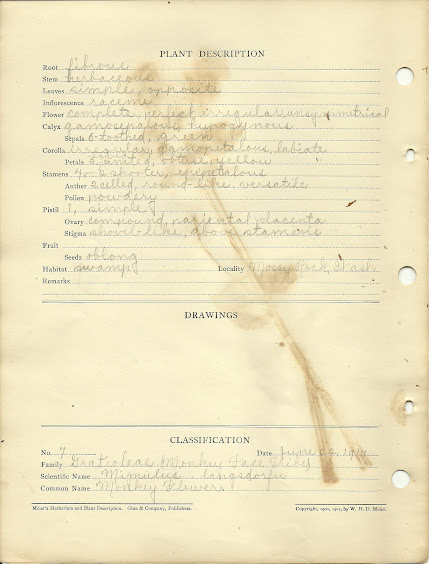 PLANT DESCRIPTION
Root fibrous
Stem herbaceous
Leaves simple, opposite
Inflorescence raceme
Flower complete, perfect, irregular, unsymmetrical
Calyx gamosepalous, hypogynous
Sepals 5-toothed, green
Corolla irregular, gamopetalous, labiate
Petals 5, united, obtuse, yellow
Stamens 4,-2 shorter, epipetalous
Anther 2 celled, round-like, versatile
Pollen powdery
Pistil 1, simple
Ovary compound, placenta
Stigma shovel-like, above stamens
Fruit
Seeds oblong
Habitat swamp Locality Mossy Rock, Wash
Remarks
DRAWINGS
CLASSIFICATION
No. 7 Date June
Family Monkey Face
Scientific Name Mimulus langsdorfii
Common Name Monkey Flower
Meier's Herbarium and Plant Description. Ginn & Company, Publishers. Copyright, 1900, 1901, by W. H. D. Meier.